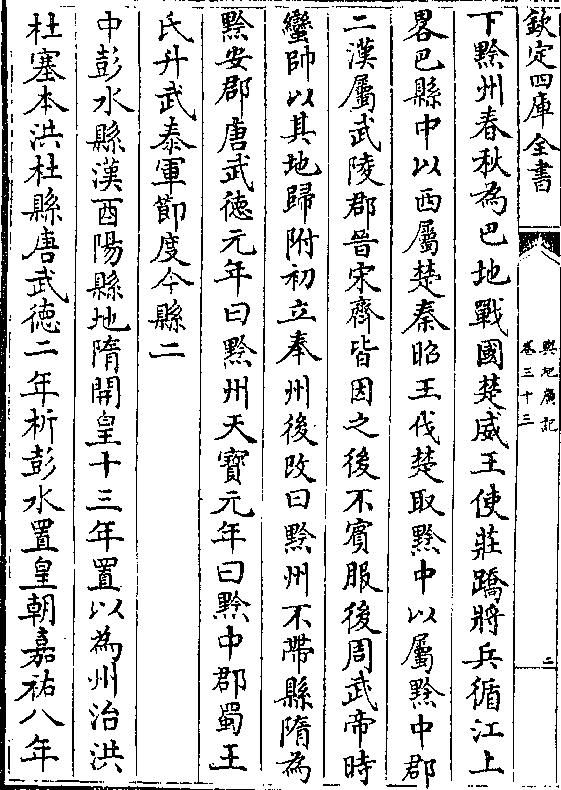 欽定四庫全書
輿地廣記
卷三十三
二
下黔州春秋為巴地戰國楚威王使莊蹻將兵循江上
畧巴縣中以西屬楚秦昭王伐楚取黔中以屬黔中郡
二漢屬武陵郡晉宋齊皆因之後不賓服後周武帝時
蠻帥以其地歸附初立奉州後改曰黔州不帶縣隋為
黔安郡唐武徳元年曰黔州天寶元年曰黔中郡蜀王
氏升武泰軍節度今縣二
中彭水縣漢酉陽縣地隋開皇十三年置以為州治洪
杜塞本洪杜縣唐武徳二年析彭水置皇朝嘉祐八年